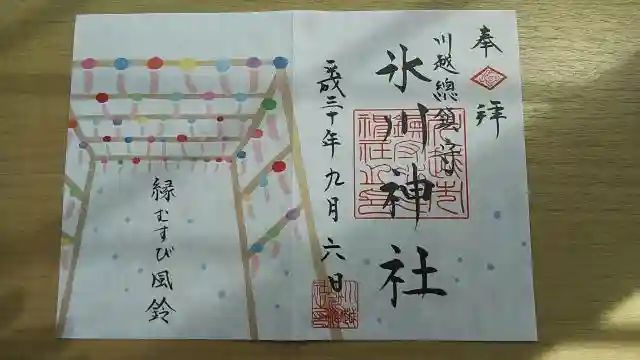 奉拝
川越總鎮守
氷川神社
平成三十年九月六日
縁むすび風鈴